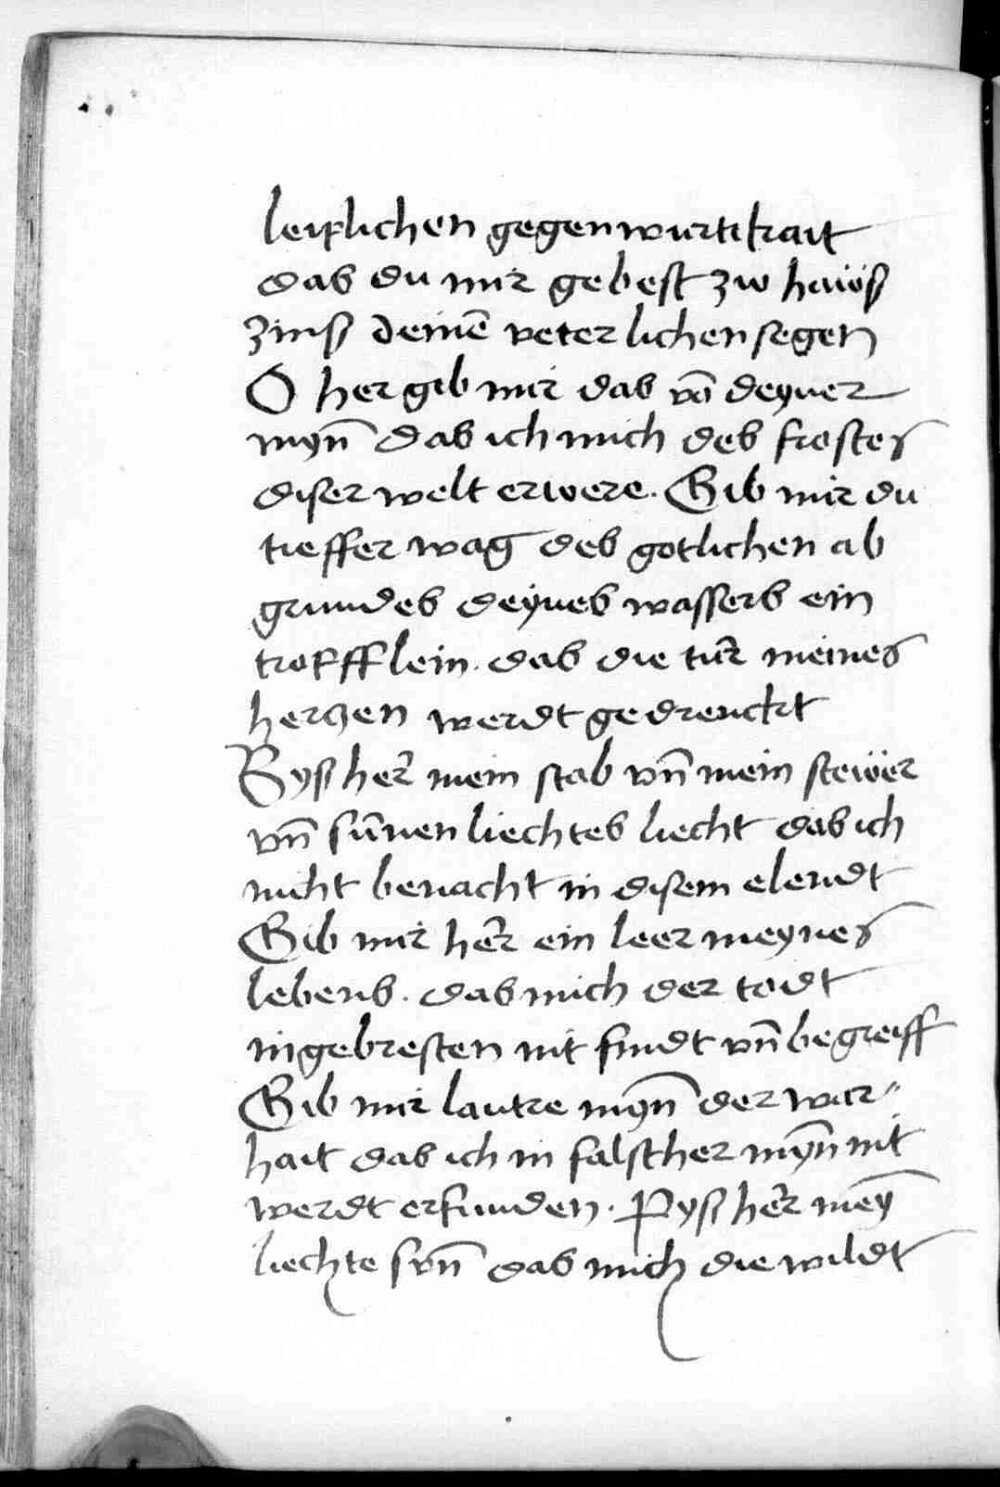 leiplichen gegenwurtikait
das du mir gebest zw hawß
zinß deinē veterlichen segen
O her gib mir das vō deyner
myn̄ das ich mich des frostes
diser welt erwere. Gib mir du
tieffer wag des gotlichen ab
grundes deynes wassers ein
tropfflein. das die tur meines
herczen werdt gedrenckt
Byß her mein stab vn̄ mein stewer
vn̄ sūnen liechtes liecht das ich
nicht benacht in disem elendt
Gib mir her ein leer meynes
lebens. das mich der todt
in gebresten nit findt vn̄ begreiff
Gib mir lautre myn̄ der war-
hait das ich in falscher myn̄ nit
werdt erfunden. Pyß her mey̅
liechte svn̄ das mich die wildt